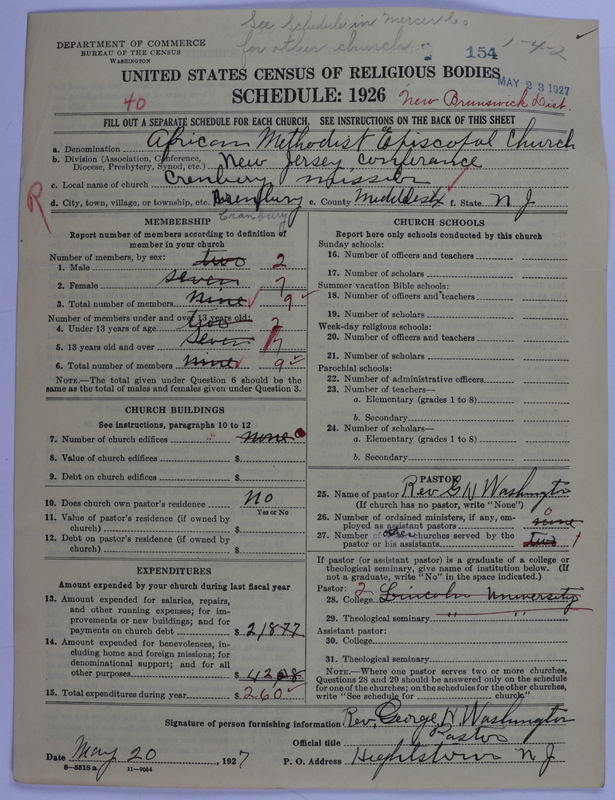 See Schedule in Mercer Co
for other church.
154 1-4-2
DEPARTMENT OF COMMERCE
BUREAU OF THE CENSUS
WASHINGTON
UNITED STATES CENSUS OF RELIGIOUS BODIES
MAY 23 1927
40 SCHEDULE: 1926 New Brunswick Dist.
FILL OUT A SEPARATE SCHEDULE FOR EACH CHURCH. SEE INSTRUCTIONS ON THE BACK OF THIS SHEET
a. Denomination African Methodist Episcopal Church
b. Division (Association, Conference, Diocese, Presbytery, Synod, etc.) New Jersey Conferance
c. Local name of church Crenbury Mission
R
d. City, town, village, or township, etc. Crenbury e. County Middlesex f. State N J
Cranbury
MEMBERSHIP
Report number of members according to definition of
member in your church
Number of members, by sex:
1. Male two 2
2. Female seven 7
3. Total number of members nine 9
Number of members under and over 13 years old:
4. Under 13 years of age two 2
5. 13 years old and over seven 7
6. Total number of members nine 9
NOTE.—The total given under Question 6 should be the
same as the total of males and females given under Question 3.
CHURCH BUILDINGS
See instructions, paragraphs 10 to 12
7. Number of church edifices none 0
8. Value of church edifices $
9. Debt on church edifices $
10. Does church own pastor's residence No
Yes or No
11. Value of pastor's residence (if owned by
church) $
12. Debt on pastor's residence (if owned by
church) $
EXPENDITURES
Amount expended by your church during last fiscal year
13. Amount expended for salaries, repairs,
and other running expenses; for im-
provements or new buildings; and for
payments on church debt $ 218 77
14. Amount expended for benevolences, in-
cluding home and foreign missions; for
denominational support; and for all
other purposes $
15. Total expenditures during year $ 260
CHURCH SCHOOLS
Report here only schools conducted by this church
Sunday schools:
16. Number of officers and teachers
17. Number of scholars
Summer vacation Bible schools:
18. Number of officers and teachers
19. Number of scholars
Week-day religious schools:
20. Number of officers and teachers
21. Number of scholars
Parochial schools:
22. Number of administrative officers
23. Number of teachers—
a. Elementary (grades 1 to 8)
b. Secondary
24. Number of scholars—
a. Elementary (grades 1 to 8)
b. Secondary
PASTOR
25. Name of pastor Rev G W Washington
(If church has no pastor, write "None")
26. Number of ordained ministers, if any, em-
ployed as assistant pastors none 0
27. Number of other churches served by the
pastor or his assistants two 1
If pastor (or assistant pastor) is a graduate of a college or
theological seminary, give name of institution below. (If
not a graduate, write "No" in the space indicated.)
Pastor: 2
28. College Lincoln University
29. Theological seminary " "
Assistant pastor:
30. College
31. Theological seminary
NOTE.—Where one pastor serves two or more churches,
Questions 28 and 29 should be answered only on the schedule
for one of the churches; on the schedules for the other churches,
write "See schedule for church."
Signature of person furnishing information Rev. George W Washington
Official title Pastor
Date May 20, 1927 P. O. Address Hightstown N J
8-5518a 11-9054